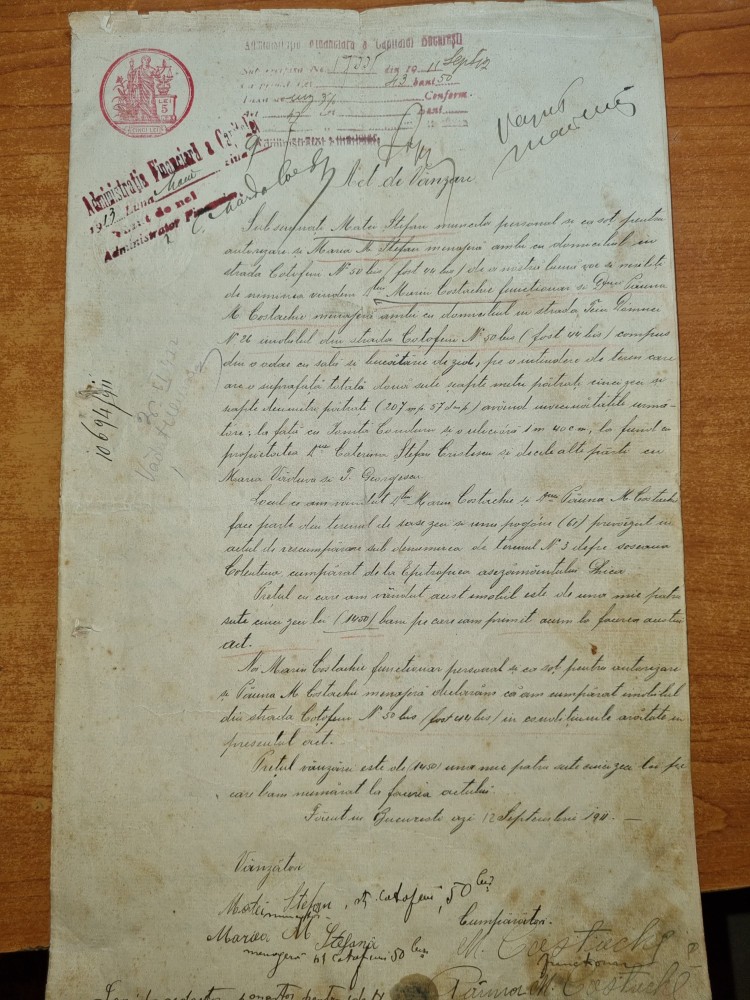 Administrația Financiară a Capitalei București
din 1911 Septbr
43 bani 50
Conform
LEI 5
Administrația Financiară a Capitalei
1913 Luna
Vizat de noi
Administrator Financiar
10694/911
Act de Vânzare
Subsemnații Matei Ștefan muncitor personal și ca soț pentru
autorizare și Maria M. Ștefan menajeră ambii cu domiciliul în
strada Cotofeni Nº 50 bis (fost 44 bis) de a nostră bună voe și nesiliți
de nimenea vindem Dlui Marin Costachie funcționar și Dnei Păuna
M Costachie menajeră ambii cu domiciliul in strada Teiu Dómnei
Nº 26 imobilul din strada Cotofeni Nº 50 bis (fost 44 bis) compus
din o odae cu sală și bucătărie de zid, pe o intindere de teren care
are o suprafață totală două sute șapte metri pătrați cinci zeci și
șapte decimetri pătrați (207 mp 57 dmp) având invecinătățile urmă-
tóre; la față cu Ioniță Canduru și o ulicióră 1 m 40 cm, la fund cu
proprietatea Dnei Caterina Ștefan Cristescu și decilealte părți cu
Maria Văduva și T. Georgescu
Locul ce am vândut Dlui Marin Costachie și Dnei Păuna M Costachie
face parte din terenul de șase zeci și unu pogóne (61) prevăzut in
actul de rescumpărare sub denumirea de terenul Nº 3 depre șoseaua
Colentina cumpărat de la Epitropia așezământului Ghica
Prețul cu care am vândut acest imobil este de una mie patru
sute cinci zeci lei (1450) bani pe care iam primit acum la facerea acestui
act.
Noi Marin Costachie funcționar personal și ca soț pentru autorizare
și Păuna M Costachie menajeră declarăm că am cumpărat imobilul
din strada Cotofeni Nº 50 bis (fost 44 bis) in condițiunile arătate in
presentul act.
Prețul vânzărei este de (1450) una mie patru sute cinci zeci lei pe
care bam numărat la facerea actului.
Făcut in București azi 12 Septembrie 1911. —
Vânzători
Matei Ștefan, str. cotofeni, 50 bis
muncitor
Cumpărători
Maria M Ștefan
M. Costachie
menajeră st cotofeni 50 bis
funcționar
Păuna M. Costache